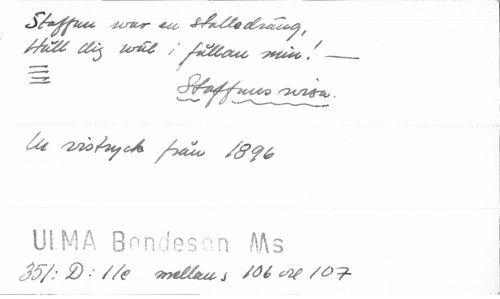 Staffan war en stalledräng,
Håll dig wäl i fållan min! —
Staffans visa.
Ur vistryck från 1896
ULMA Bondeson Ms
351: D: 11e mellan s 106 och 107